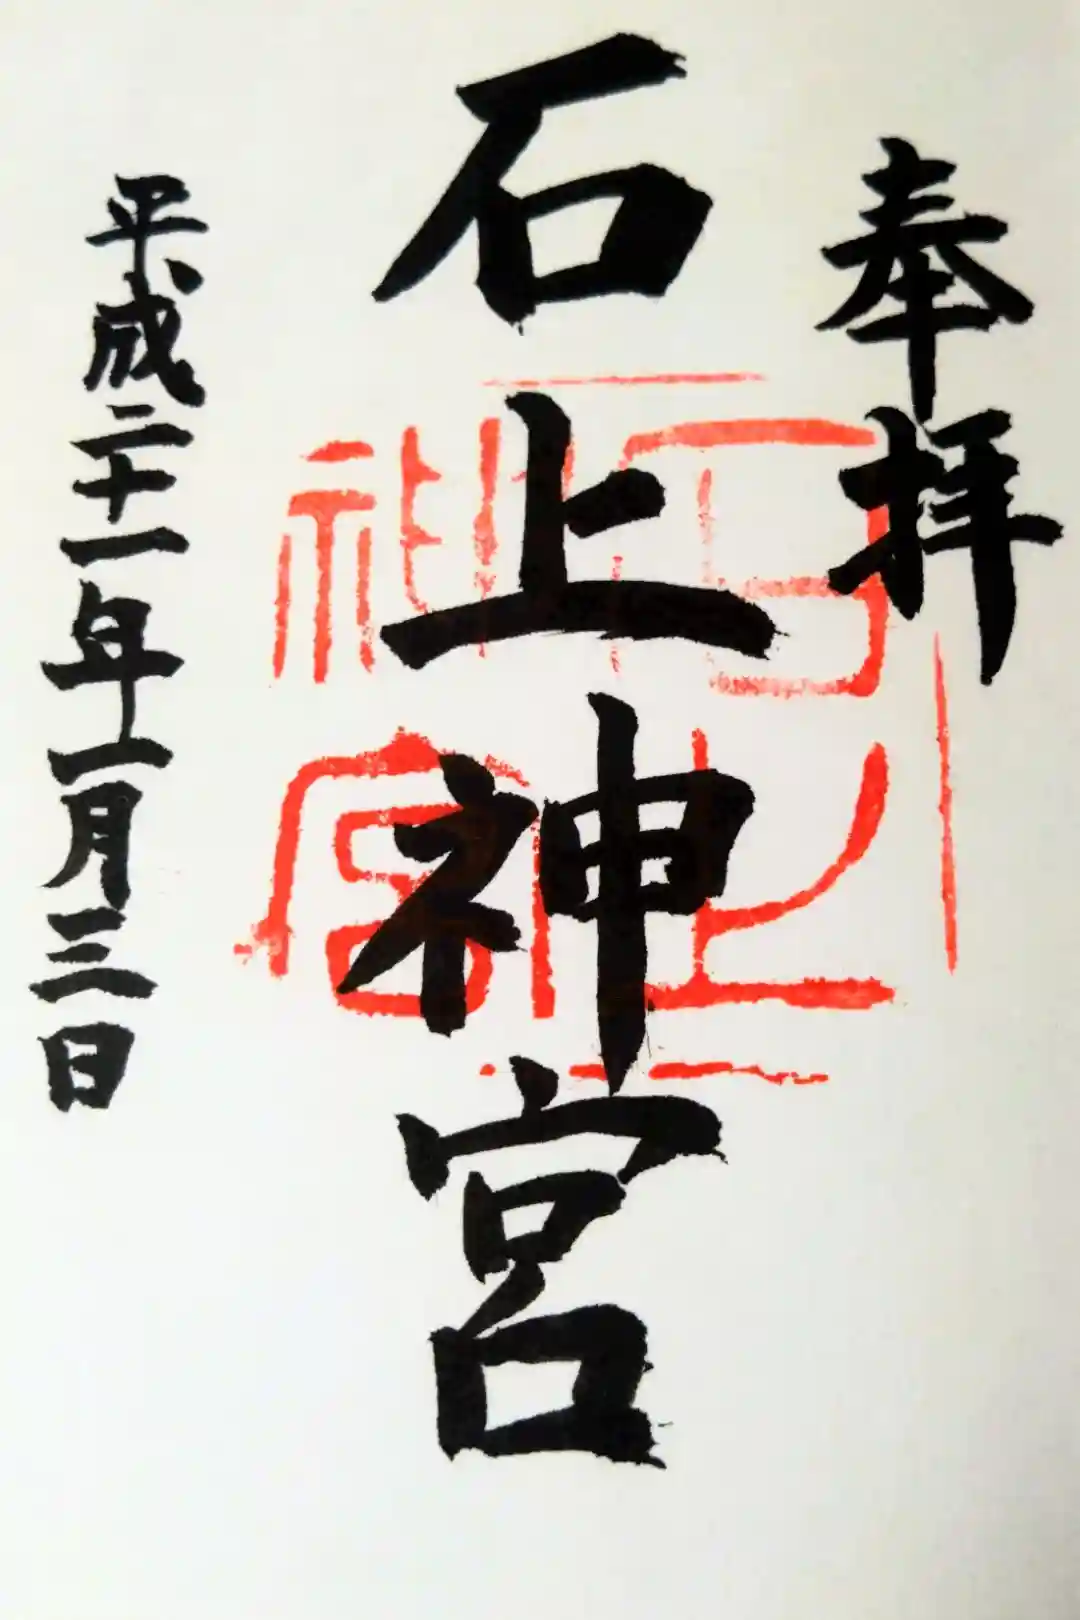 奉拝
石上神宮
石上神宮
平成二十一年一月三日